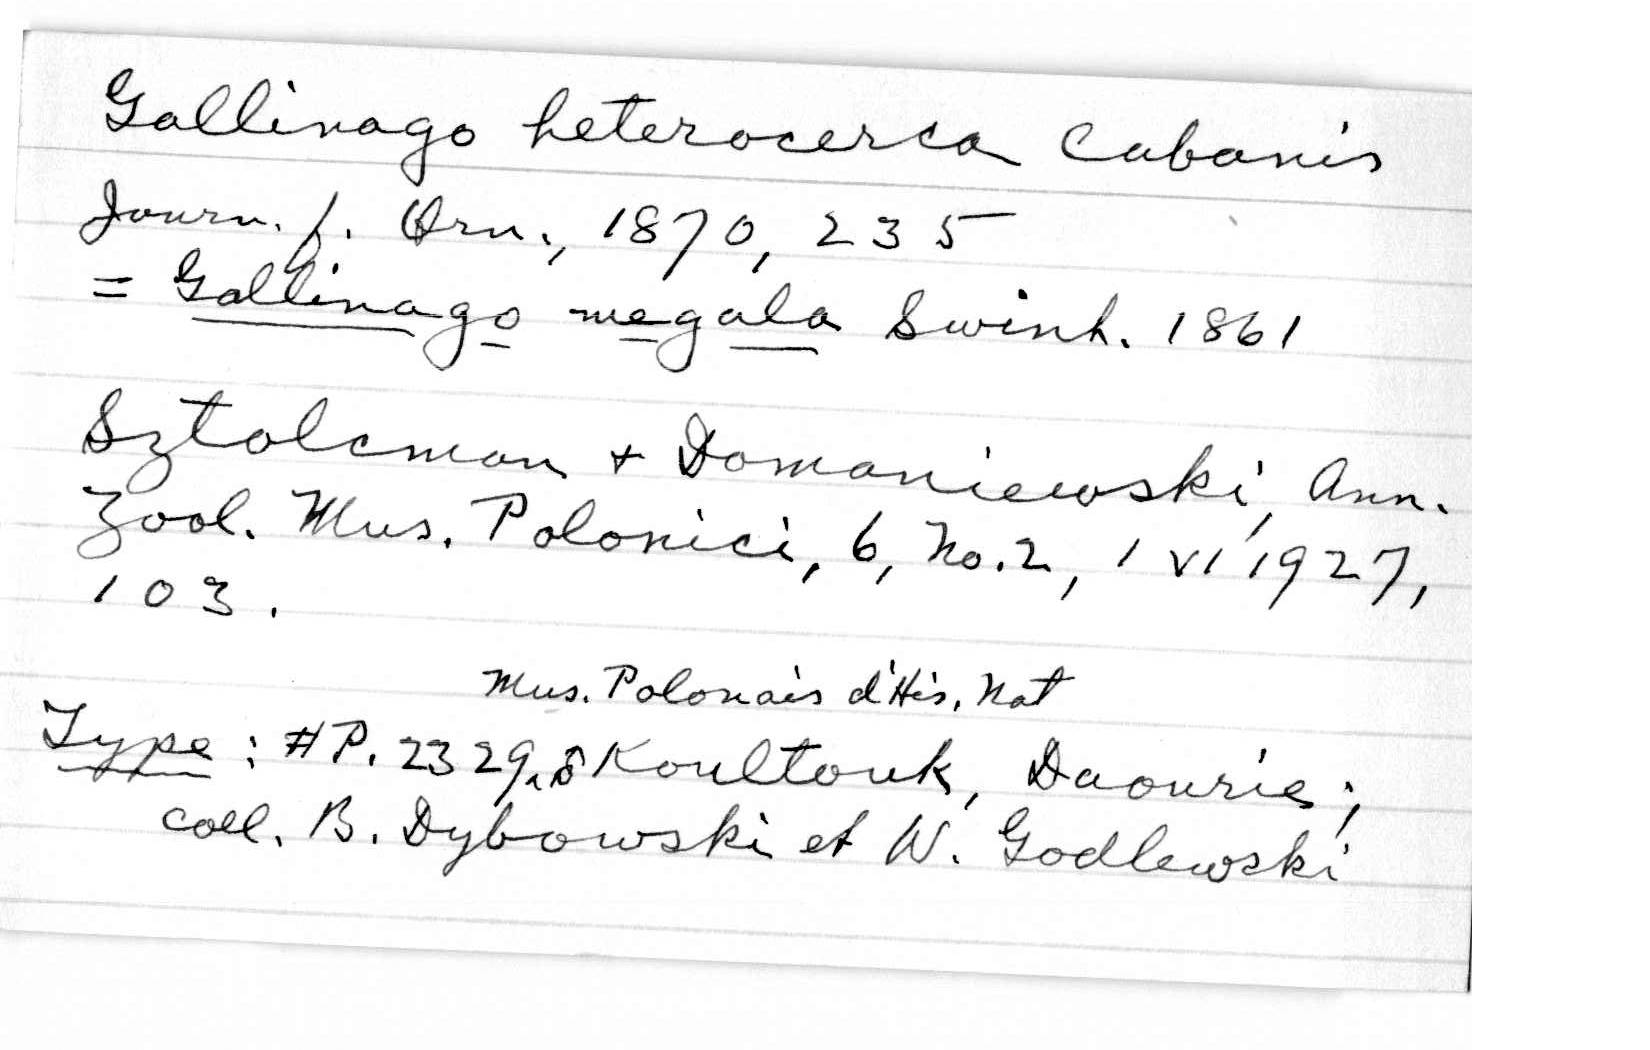 Gallinago heterocerca Cabanis
Journ. f. Orn., 1870, 235
= Gallinago megala Swinh. 1861
Sztolcman + Domaniewski, Ann.
Zool. Mus. Polonici, 6, No. 2, 1 VI 1927,
103.
Mus. Polonais d'His. Nat
Type : #P. 2329, ♂ Koultouk, Daourie ;
coll. B. Dybowski et W. Godlewski